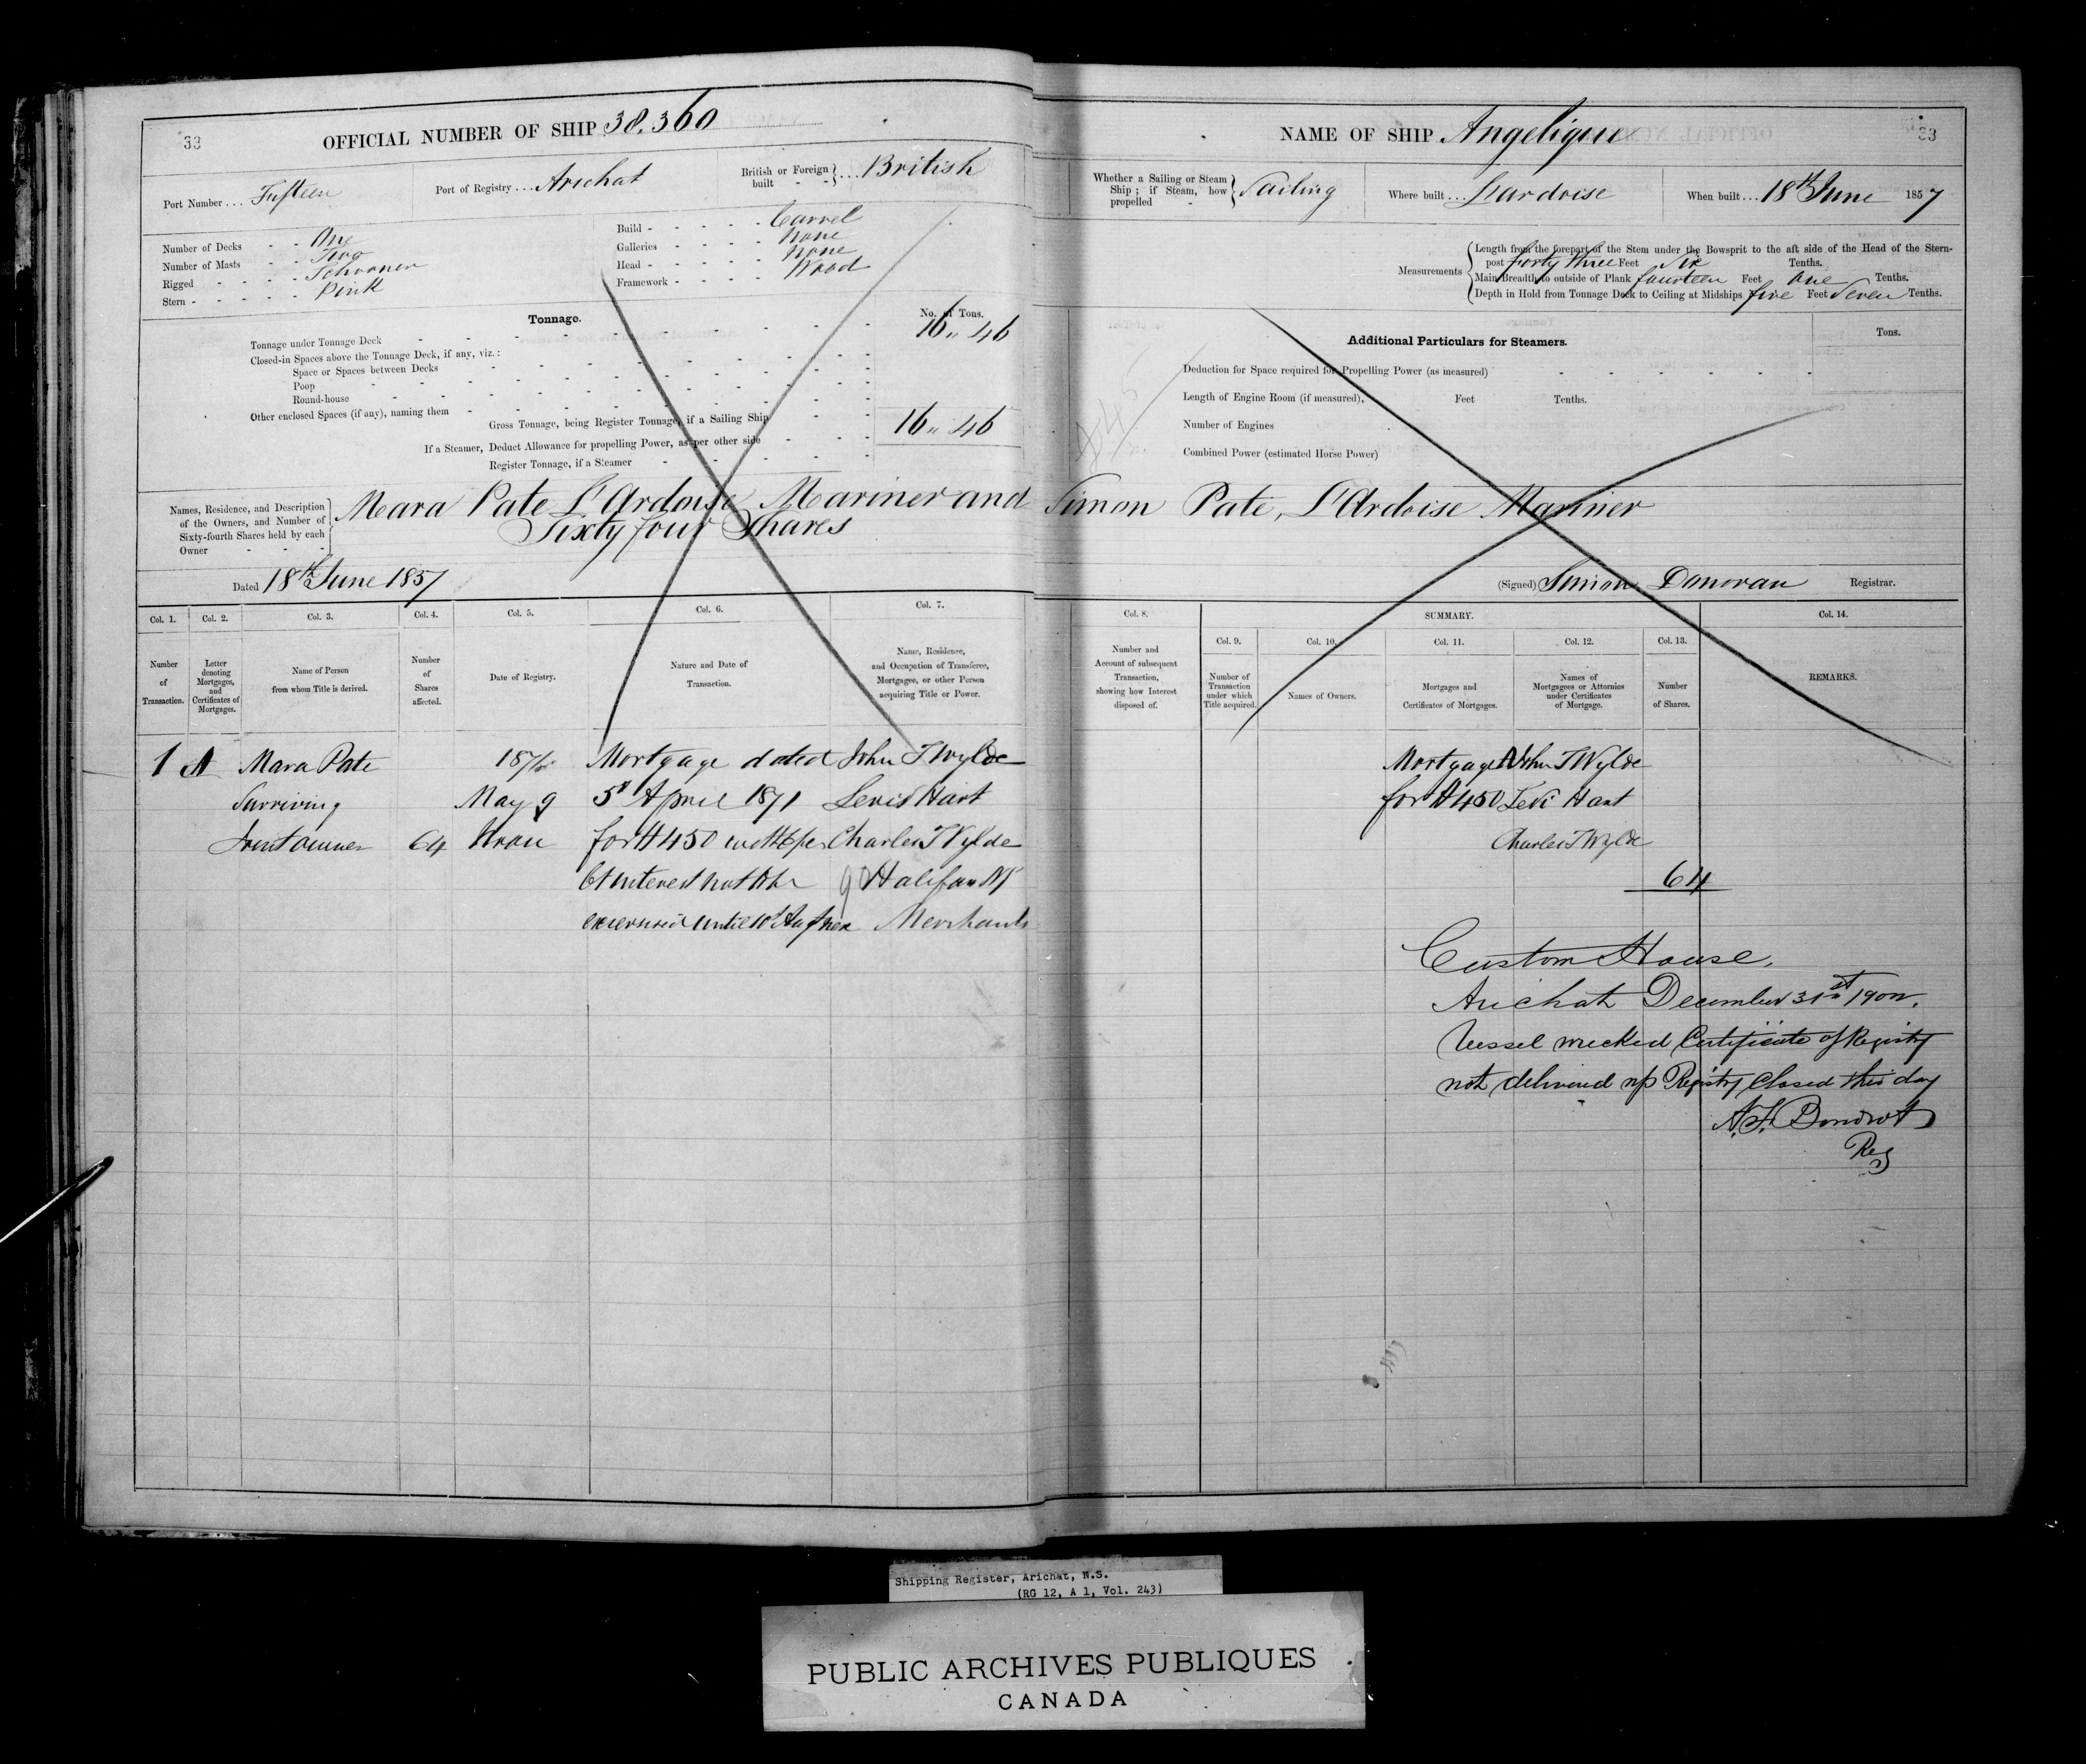 33
OFFICIAL NUMBER OF SHIP 38,360
Port Number... Fifteen
Port of Registry... Arichat
British or Foreign built - - } ... British
Number of Decks - - One
Number of Masts - - Two
Rigged - - - - Schooner
Stern - - - - - Pink
Build - - - - - Carvel
Galleries - - - - none
Head - - - - - none
Framework - - - - Wood
Tonnage.
No. of Tons.
Tonnage under Tonnage Deck 16 " 46
Closed-in Spaces above the Tonnage Deck, if any, viz.:
Space or Spaces between Decks
Poop
Round-house
Other enclosed Spaces (if any), naming them
Gross Tonnage, being Register Tonnage, if a Sailing Ship 16 " 46
If a Steamer, Deduct Allowance for propelling Power, as per other side
Register Tonnage, if a Steamer
NAME OF SHIP Angelique
33
Whether a Sailing or Steam Ship; if Steam, how propelled } Sailing
Where built... Lardoise
When built... 18th June 1857
Measurements
Length from the forepart of the Stem under the Bowsprit to the aft side of the Head of the Stern-
post forty three Feet Six Tenths.
Main Breadth to outside of Plank fourteen Feet One Tenths.
Depth in Hold from Tonnage Deck to Ceiling at Midships five Feet Seven Tenths.
Additional Particulars for Steamers.
Tons.
Deduction for Space required for Propelling Power (as measured)
Length of Engine Room (if measured), Feet Tenths.
Number of Engines
Combined Power (estimated Horse Power)
Names, Residence, and Description
of the Owners, and Number of
Sixty-fourth Shares held by each
Owner - - -
Mara Pate L'Ardoise Mariner and Simon Pate, L'Ardoise Mariner
Sixty four Shares
Dated 18th June 1857
(Signed) Simon Donovan Registrar.
Col. 1. Col. 2. Col. 3. Col. 4. Col. 5. Col. 6. Col. 7. Col. 8. SUMMARY. Col. 14.
Col. 9. Col. 10. Col. 11. Col. 12. Col. 13.
Number of Transaction.
Letter denoting Mortgages, and Certificates of Mortgages.
Name of Person from whom Title is derived.
Number of Shares affected.
Date of Registry.
Nature and Date of Transaction.
Name, Residence, and Occupation of Transferee, Mortgagee, or other Person acquiring Title or Power.
Number and Account of subsequent Transaction, showing how Interest disposed of.
Number of Transaction under which Title acquired.
Names of Owners.
Mortgages and Certificates of Mortgages.
Names of Mortgagees or Attornies under Certificates of Mortgage.
Number of Shares.
REMARKS.
1 A Mara Pate 1871 Mortgage dated John T Wylde
Surviving May 9 5th April 1871 Levi Hart
Joint owner 64 Noon for $450 with 6 per Charles T Wylde
Ct interest not to be Halifax NS
exercised until 10th Aug Merchants
Mortgage A John T Wylde
for $450 Levi Hart
Charles T Wylde
64
Custom House,
Arichat December 31st 190
Vessel wrecked Certificate of Registry
not delivered up Registry Closed this day
Reg
Shipping Register, Arichat, N.S.
(RG 12, A 1, Vol. 243)
PUBLIC ARCHIVES PUBLIQUES
CANADA